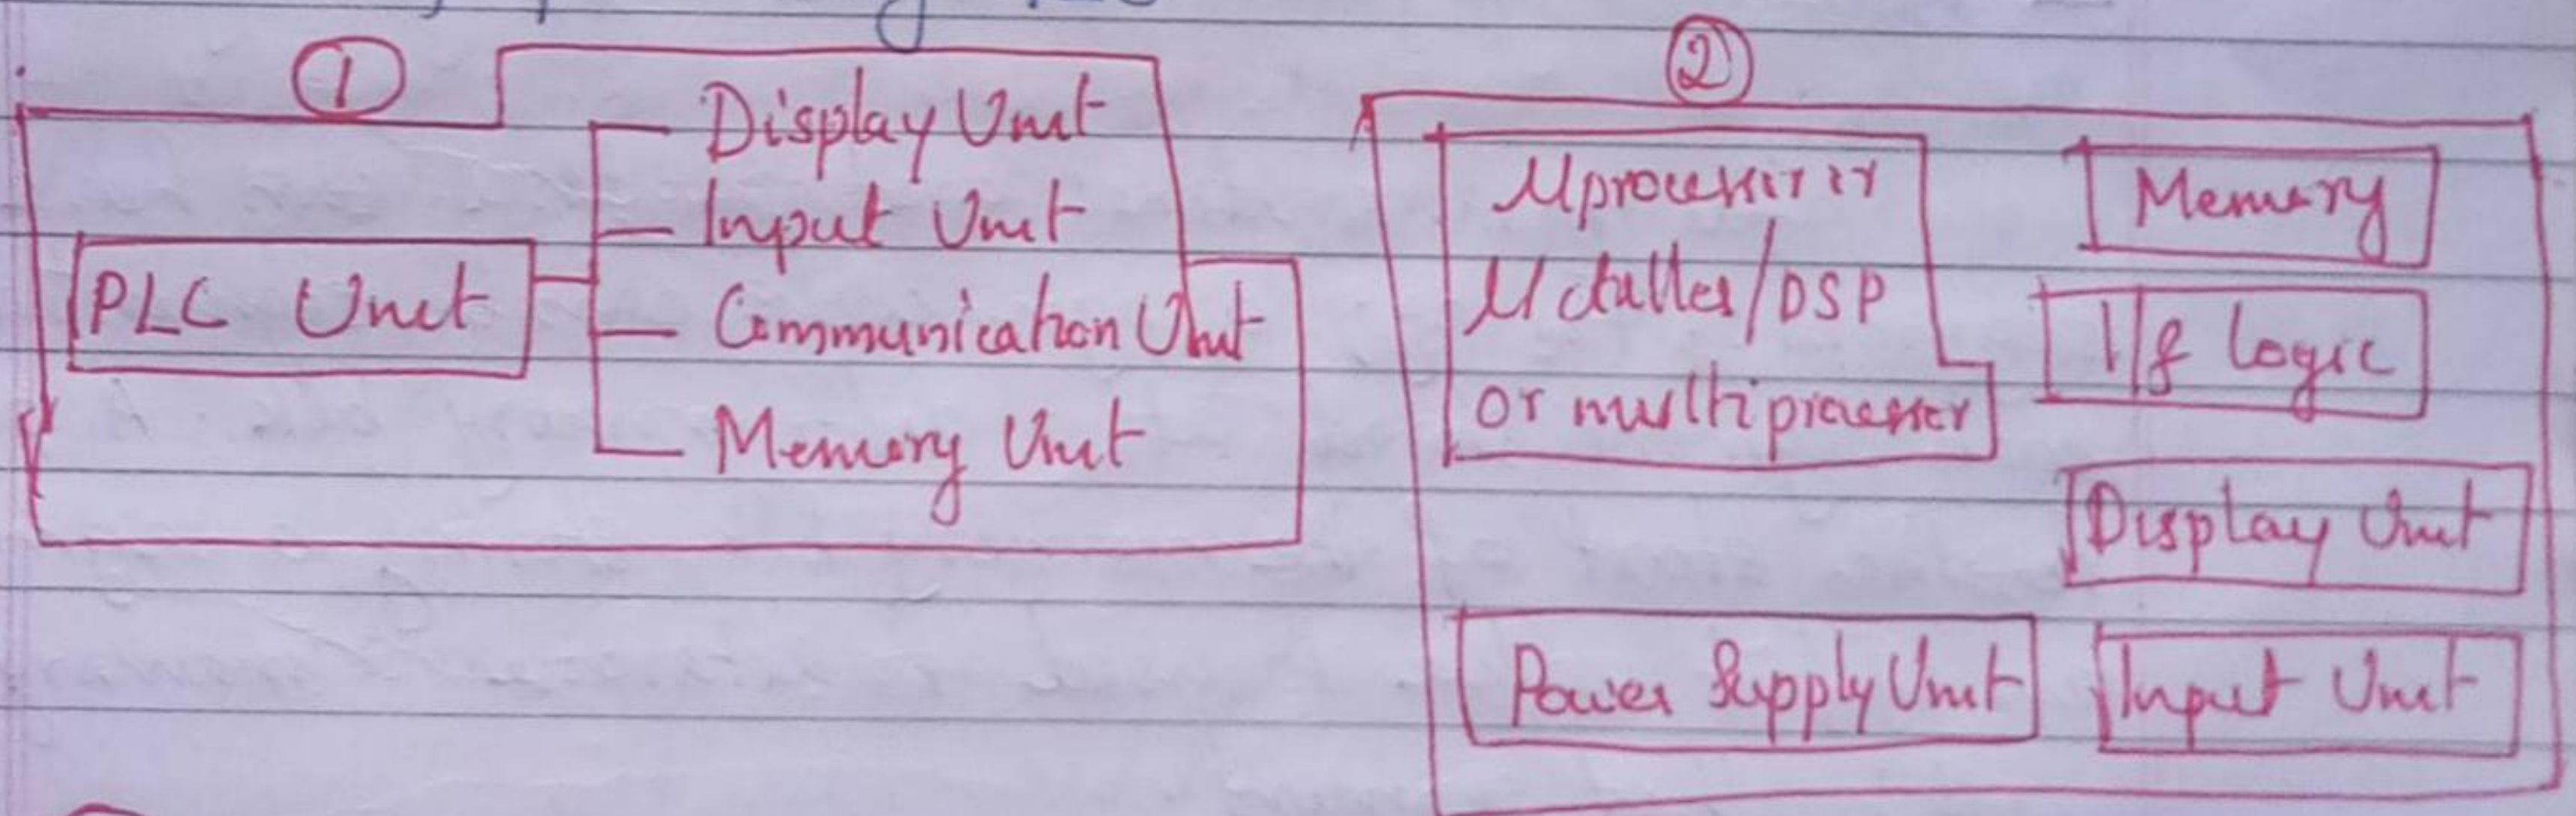 ①
Display Unit
Input Unit
PLC Unit
Communication Unit
Memory Unit
②
Mprocessor or
Mctuller/DSP
or multiprocessor
Memory
I/f logic
Display Unit
Power Supply Unit
Input Unit